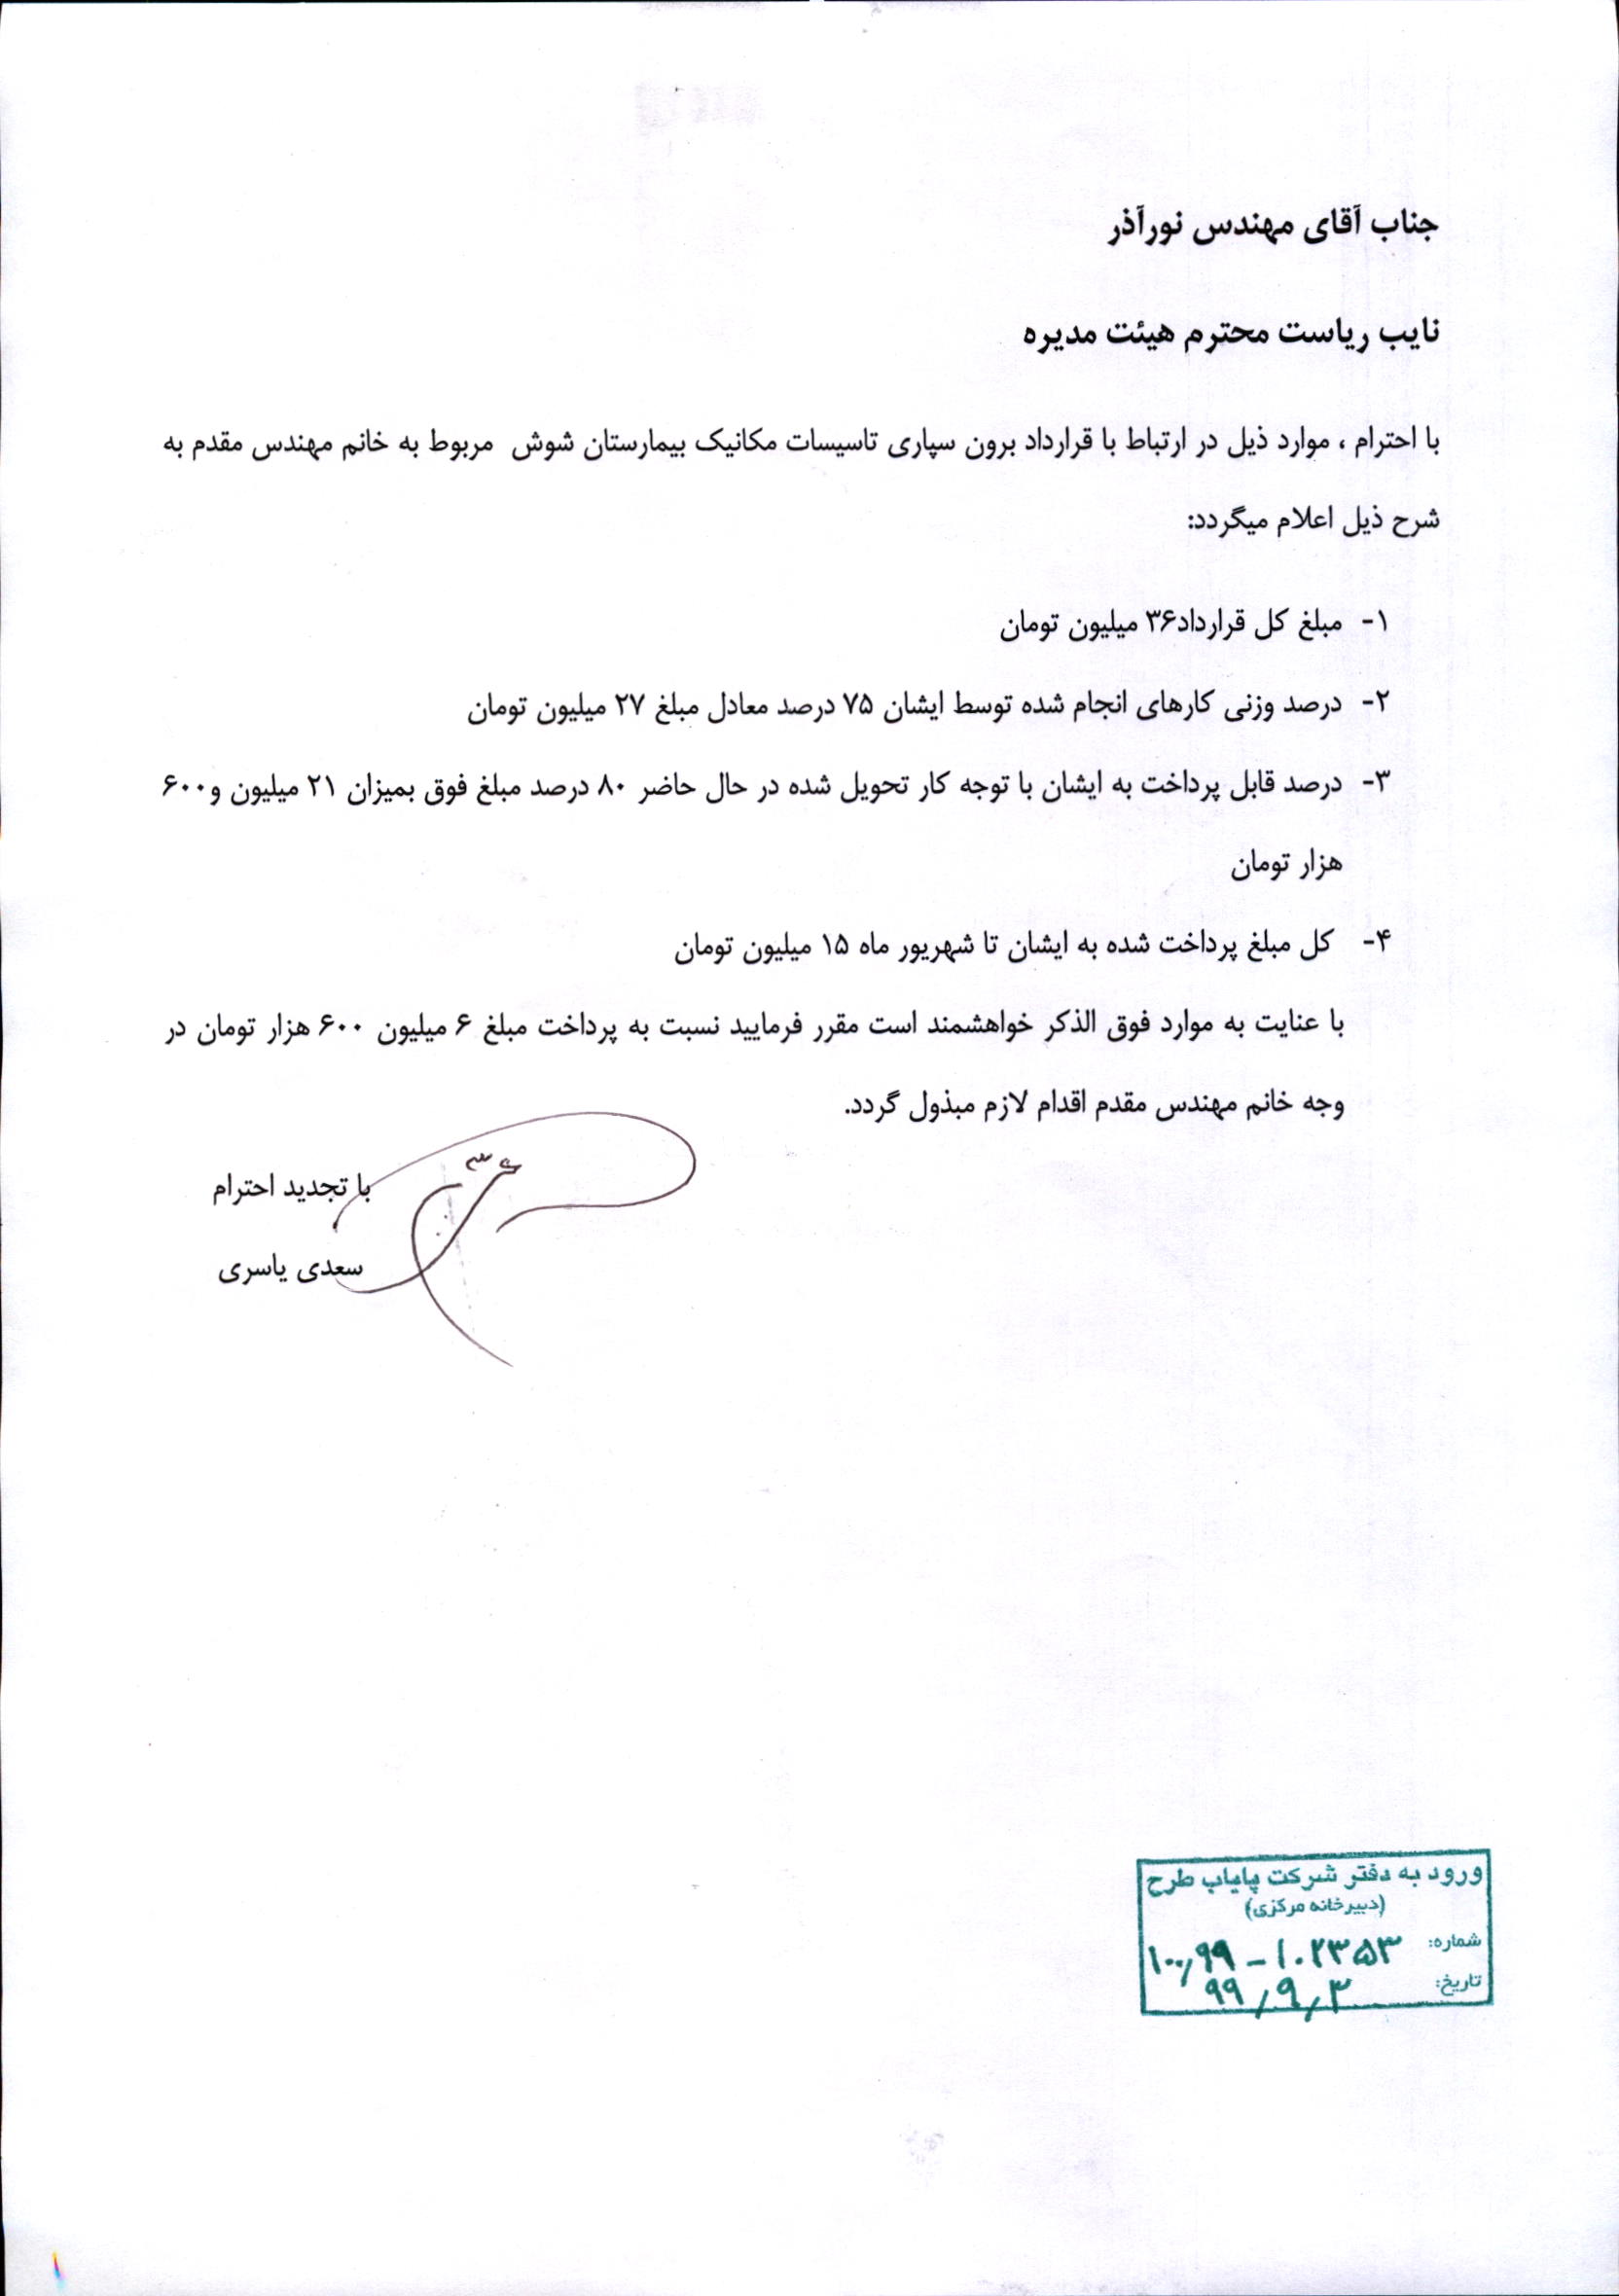 جناب آقای مهندس نورآذر
نایب ریاست محترم هیئت مدیره
با احترام ، موارد ذیل در ارتباط با قرارداد برون سپاری تاسیسات مکانیک بیمارستان شوش مربوط به خانم مهندس مقدم به
شرح ذیل اعلام میگردد:
۱- مبلغ کل قرارداد۳۶ میلیون تومان
۲- درصد وزنی کارهای انجام شده توسط ایشان ۷۵ درصد معادل مبلغ ۲۷ میلیون تومان
۳- درصد قابل پرداخت به ایشان با توجه کار تحویل شده در حال حاضر ۸۰ درصد مبلغ فوق بمیزان ۲۱ میلیون و۶۰۰
هزار تومان
۴- کل مبلغ پرداخت شده به ایشان تا شهریور ماه ۱۵ میلیون تومان
با عنایت به موارد فوق الذکر خواهشمند است مقرر فرمایید نسبت به پرداخت مبلغ ۶ میلیون ۶۰۰ هزار تومان در
وجه خانم مهندس مقدم اقدام لازم مبذول گردد.
با تجدید احترام
سعدی یاسری
ورود به دفتر شرکت پایاب طرح
(دبیرخانه مرکزی)
شماره: ۱۰۰٫۹۹ - ۱۰۲۳۵۳
تاریخ: ۹۹٫۹٫۳